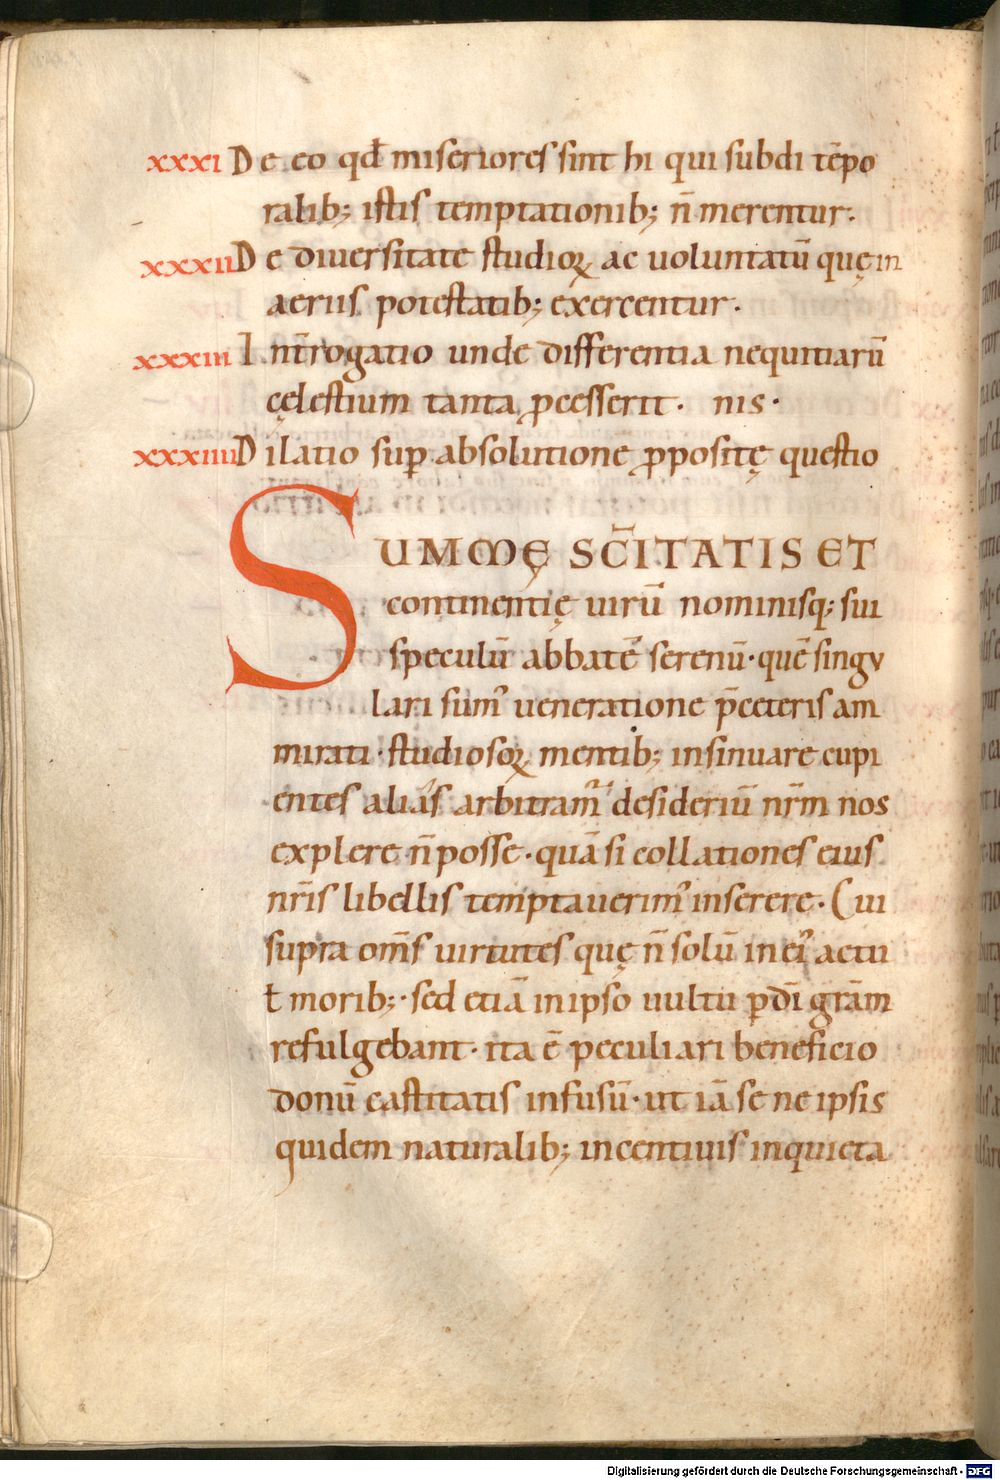 xxxi De eo qd̄ miseriores sint hi qui subdi tēpo
ralib; istis temptationib; n̄ merentur.
xxxii De diuersitate studioꝝ ac uoluntatū quę in
aeriis potestatib; exercentur.
xxxiii Int̄rogatio unde differentia nequitiarū
cęlestium tanta ꝓcesserit. nis.
xxxiiii Dilatio suꝑ absolutione ꝓpositę questio
SUMMĘ SC̄ITATIS ET
continentię uirū nominisq; sui
speculū abbatē serenū. quē singu
lari sum᾿ ueneratione p̄ceteris am
mirati. studiosoꝝ mentib; insinuare cupi
entes alias arbitram᾿ desideriū nr̄m nos
explere n̄ posse. quā si collationes eius
nr̄is libellis temptauerim᾿ inserere. Cui
supra om̄s uirtutes quę n̄ solū in ei᾿ actu
ł morib;. sed etiā in ipso uultu ꝑ dī grām
refulgebant. ita ē peculiari beneficio
donū castitatis infusū. ut iā se ne ipsis
quidem naturalib; incentiuis inquieta
Digitalisierung gefördert durch die Deutsche Forschungsgemeinschaft - DFG